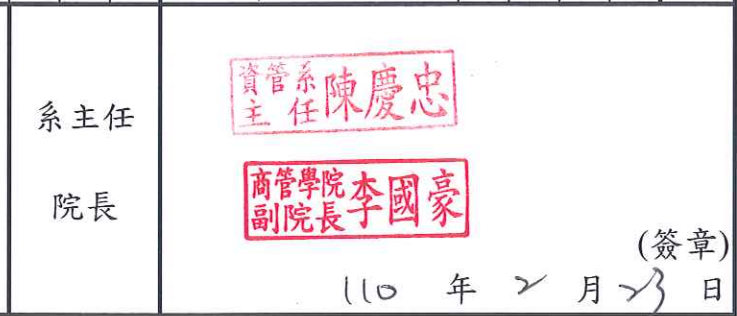 系主任
院長
資管系
主任陳慶忠
商管學院
副院長李國豪
(簽章)
110 年 2 月 23 日